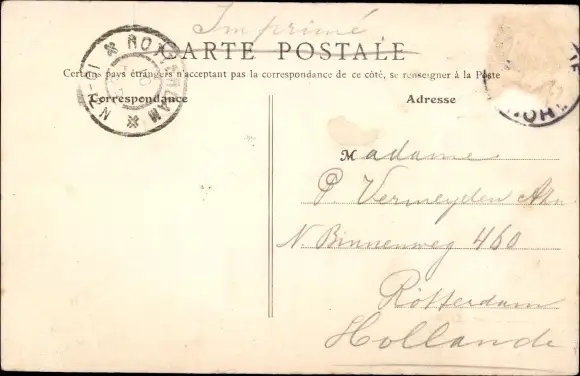 Imprimé
CARTE POSTALE
Certains pays étrangers n'acceptant pas la correspondance de ce côté, se renseigner à la Poste
Correspondance
Adresse
ROTTERDAM
Madame
P. Vermeyden
N. Binnenweg 460
Rotterdam
Hollande